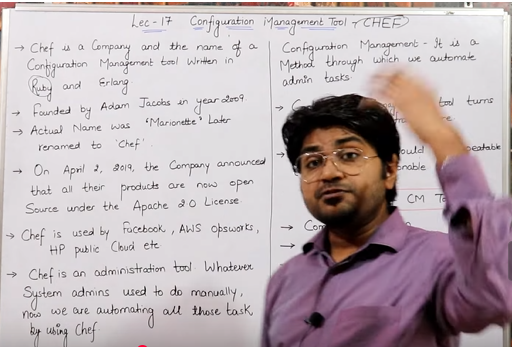 Lec-17 Configuration Management Tool - CHEF
→ Chef is a Company and the name of a
Configuration Management tool Written in
Ruby and Erlang
→ Founded by Adam Jacobs in year 2009.
→ Actual Name was 'Marionette' Later
renamed to 'Chef'.
→ On April 2, 2019, the Company announced
that all their products are now open
Source under the Apache 2.0 License.
→ Chef is used by Facebook, AWS opsworks,
HP public Cloud etc
→ Chef is an administration tool Whatever
System admins used to do manually,
now we are automating all those task,
by using Chef.
Configuration Management - It is a
Method through which we automate
admin tasks.
tool turns
CM